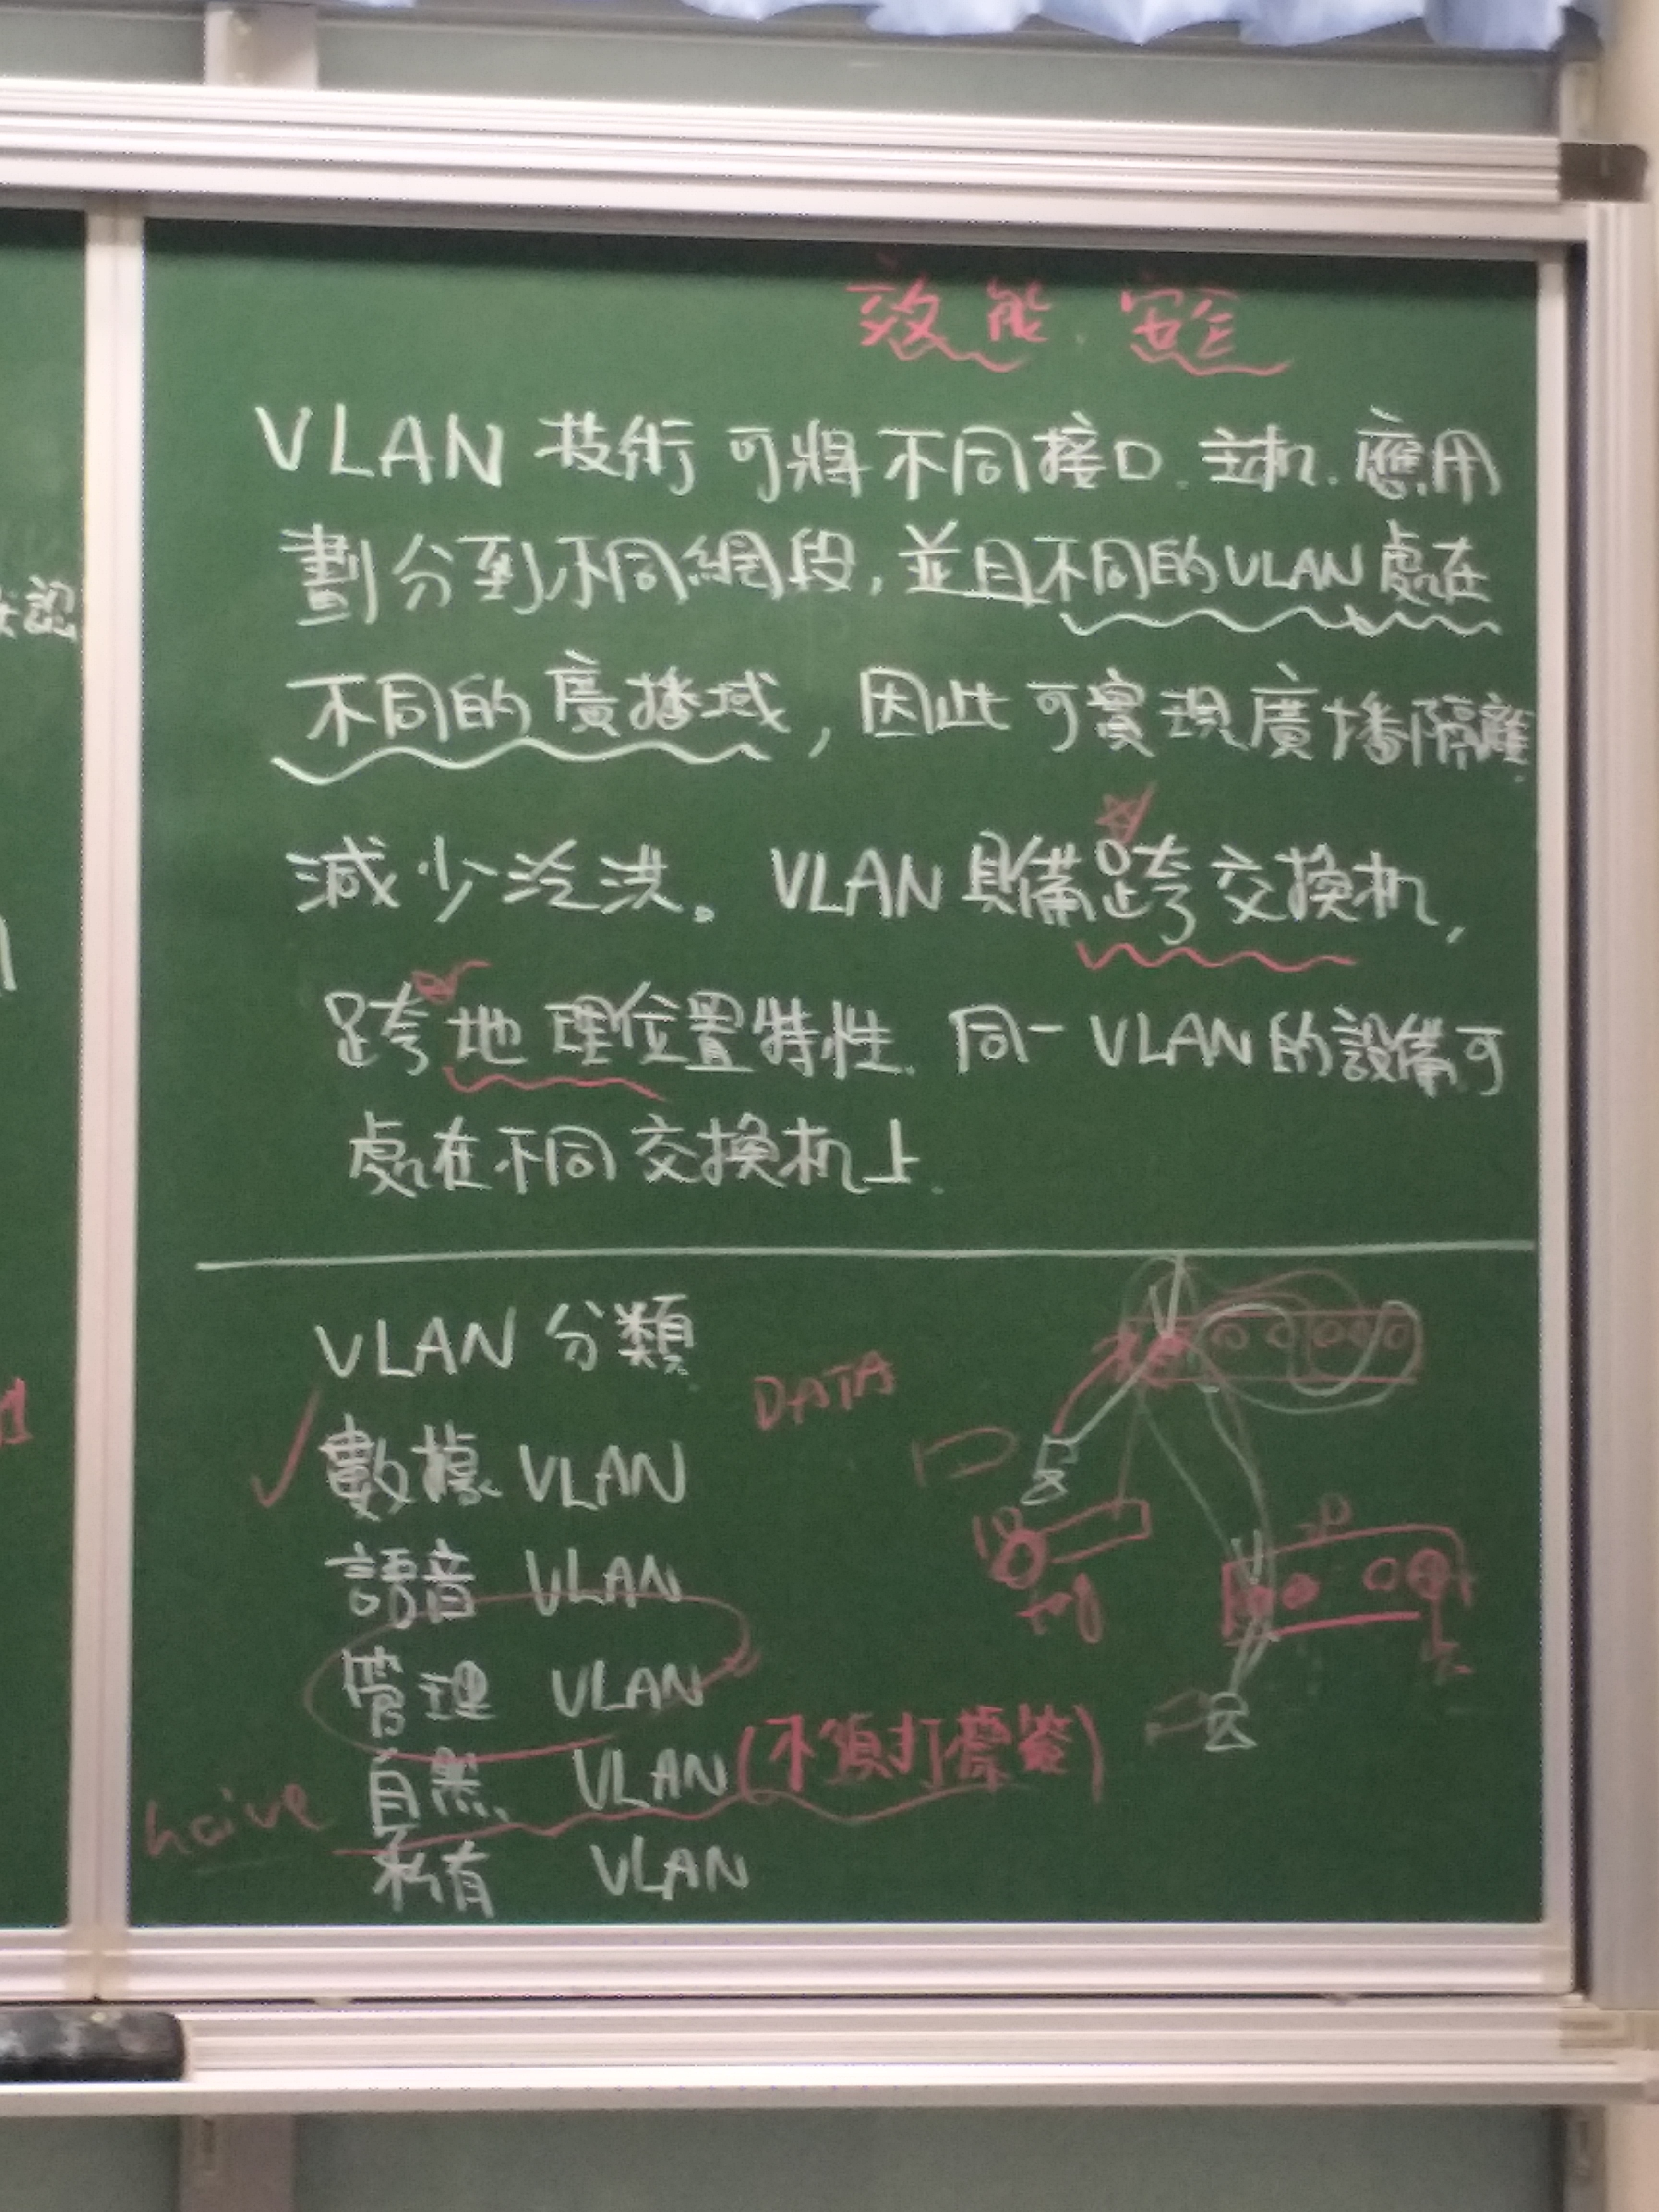 效能、安全
VLAN 技術 可將不同接口、主机、應用
劃分到不同網段,並且不同的VLAN處在
不同的廣播域,因此可實現廣播隔離,
減少泛洪。VLAN具備跨交換机,
跨地理位置特性. 同一VLAN的設備可
處在不同交換机上.
VLAN 分類
DATA
數據 VLAN
語音 VLAN
管理 VLAN
自然 VLAN (不須打標簽)
naive
私有 VLAN
認